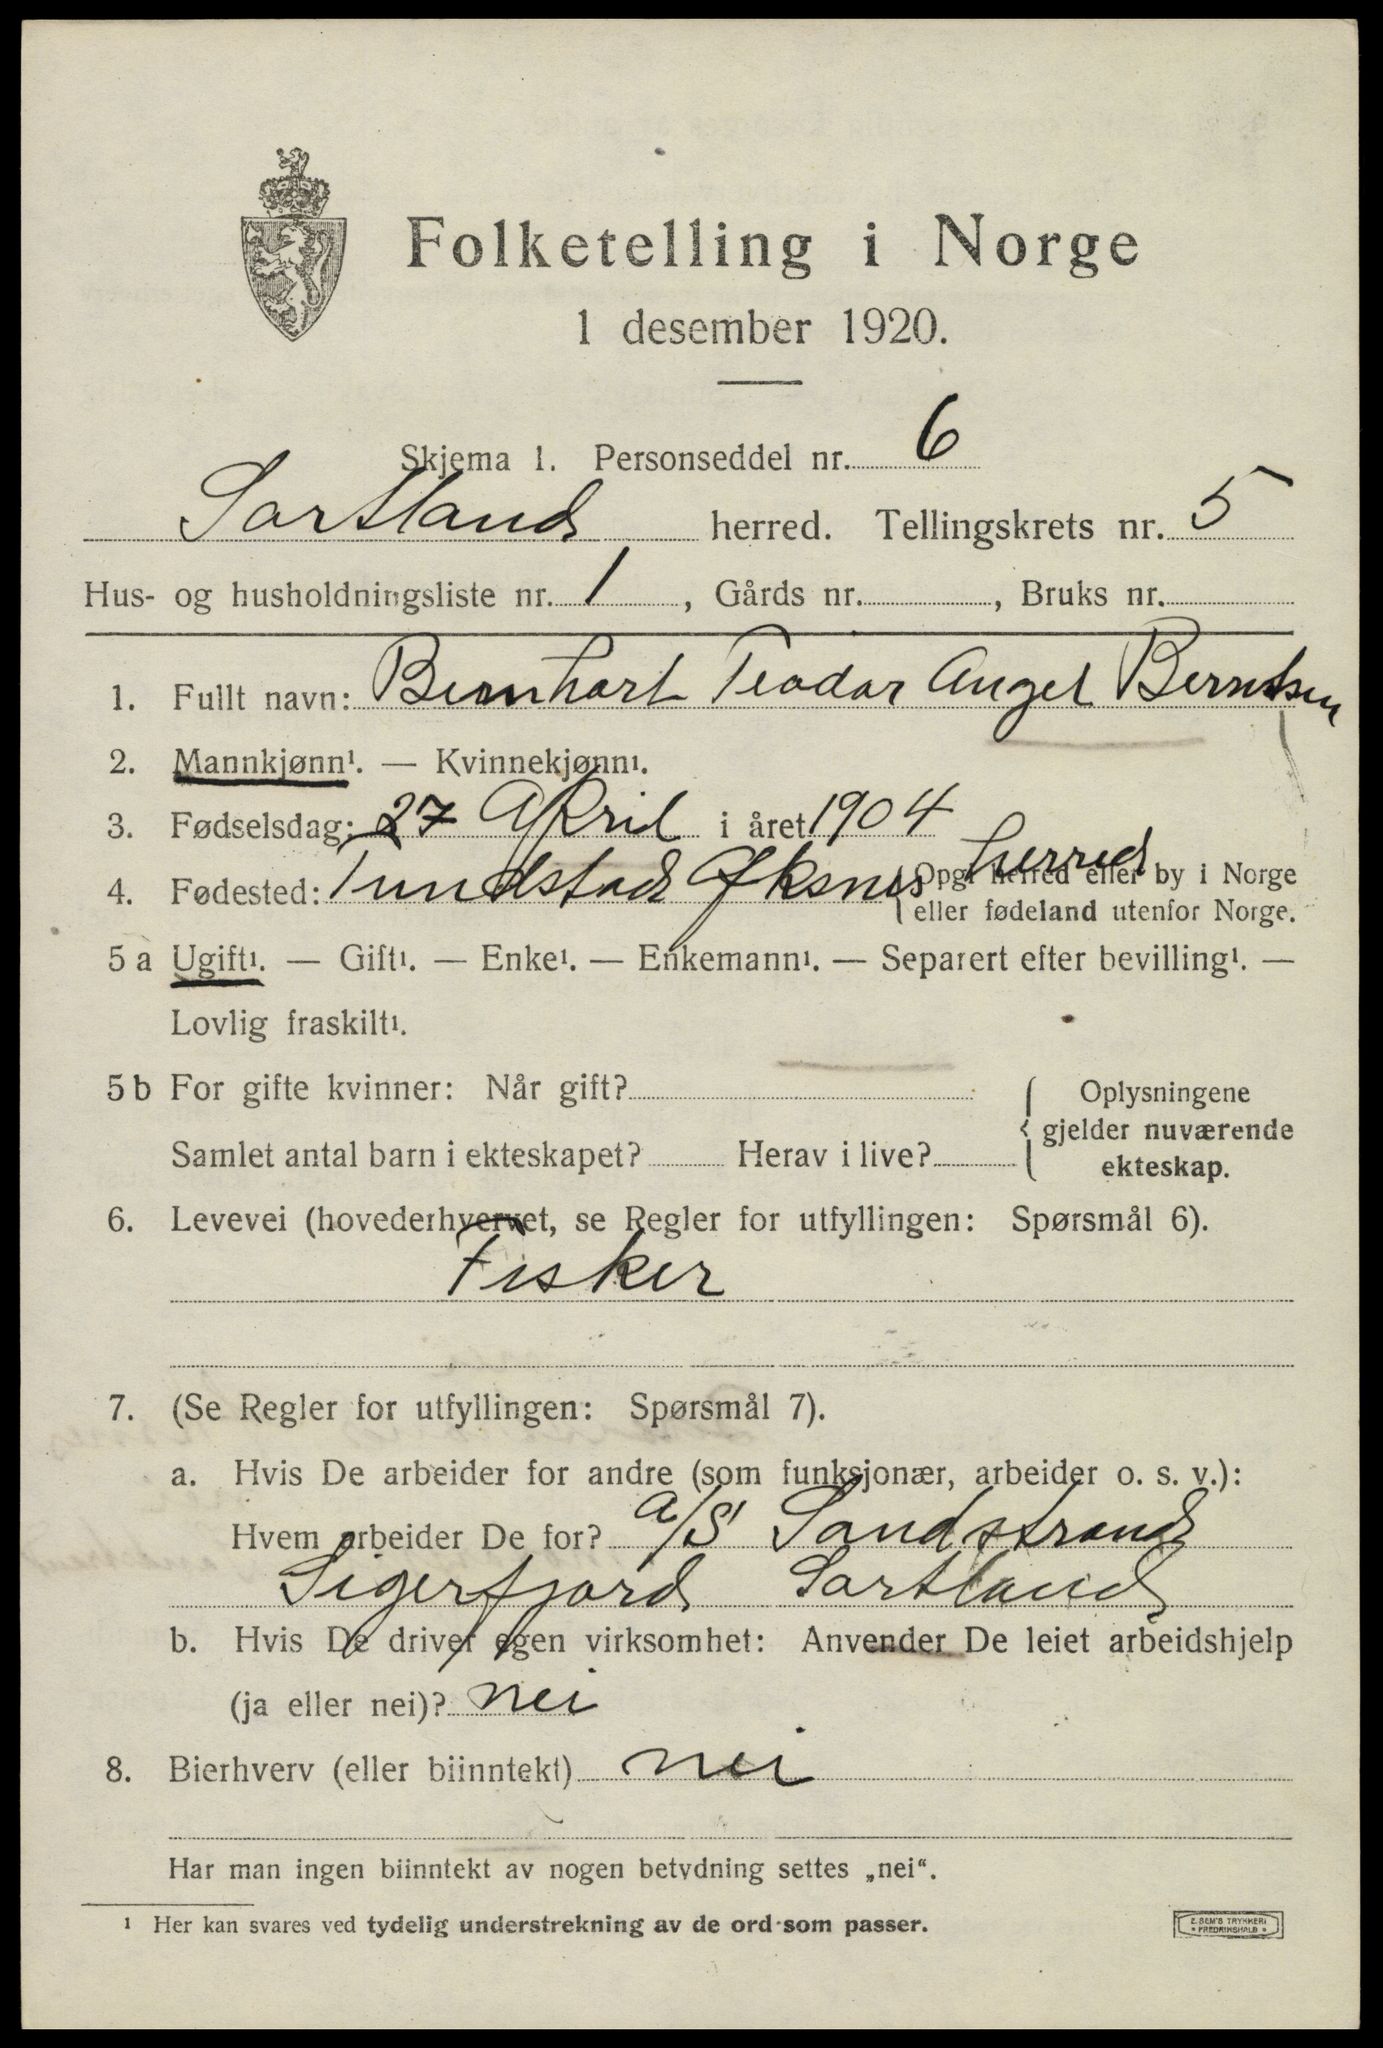 Folketelling i Norge
1 desember 1920.
Skjema 1. Personseddel nr. 6
Sortland herred. Tellingskrets nr. 5
Hus- og husholdningsliste nr. 1, Gårds nr. , Bruks nr.
1. Fullt navn: Bernhart Teodor Angel Berntsen
2. Mannkjønn¹. — Kvinnekjønn¹.
3. Fødselsdag: 27 April i året 1904
4. Fødested: Tundstad Øksnes herred { Opgi herred eller by i Norge
eller fødeland utenfor Norge.
5 a Ugift¹. — Gift¹. — Enke¹. — Enkemann¹. — Separert efter bevilling¹. —
Lovlig fraskilt¹.
5 b For gifte kvinner: Når gift?
Samlet antal barn i ekteskapet? Herav i live?
{ Oplysningene
gjelder nuværende
ekteskap.
6. Levevei (hovederhvervet, se Regler for utfyllingen: Spørsmål 6).
Fisker
7. (Se Regler for utfyllingen: Spørsmål 7).
a. Hvis De arbeider for andre (som funksjonær, arbeider o. s. v.):
Hvem arbeider De for? a/S Sandstrand
Sigerfjord Sortland
b. Hvis De driver egen virksomhet: Anvender De leiet arbeidshjelp
(ja eller nei)? nei
8. Bierhverv (eller biinntekt) nei
Har man ingen biinntekt av nogen betydning settes „nei“.
¹ Her kan svares ved tydelig understrekning av de ord som passer.
E. SEM'S TRYKKERI
* FREDRIKSHALD *